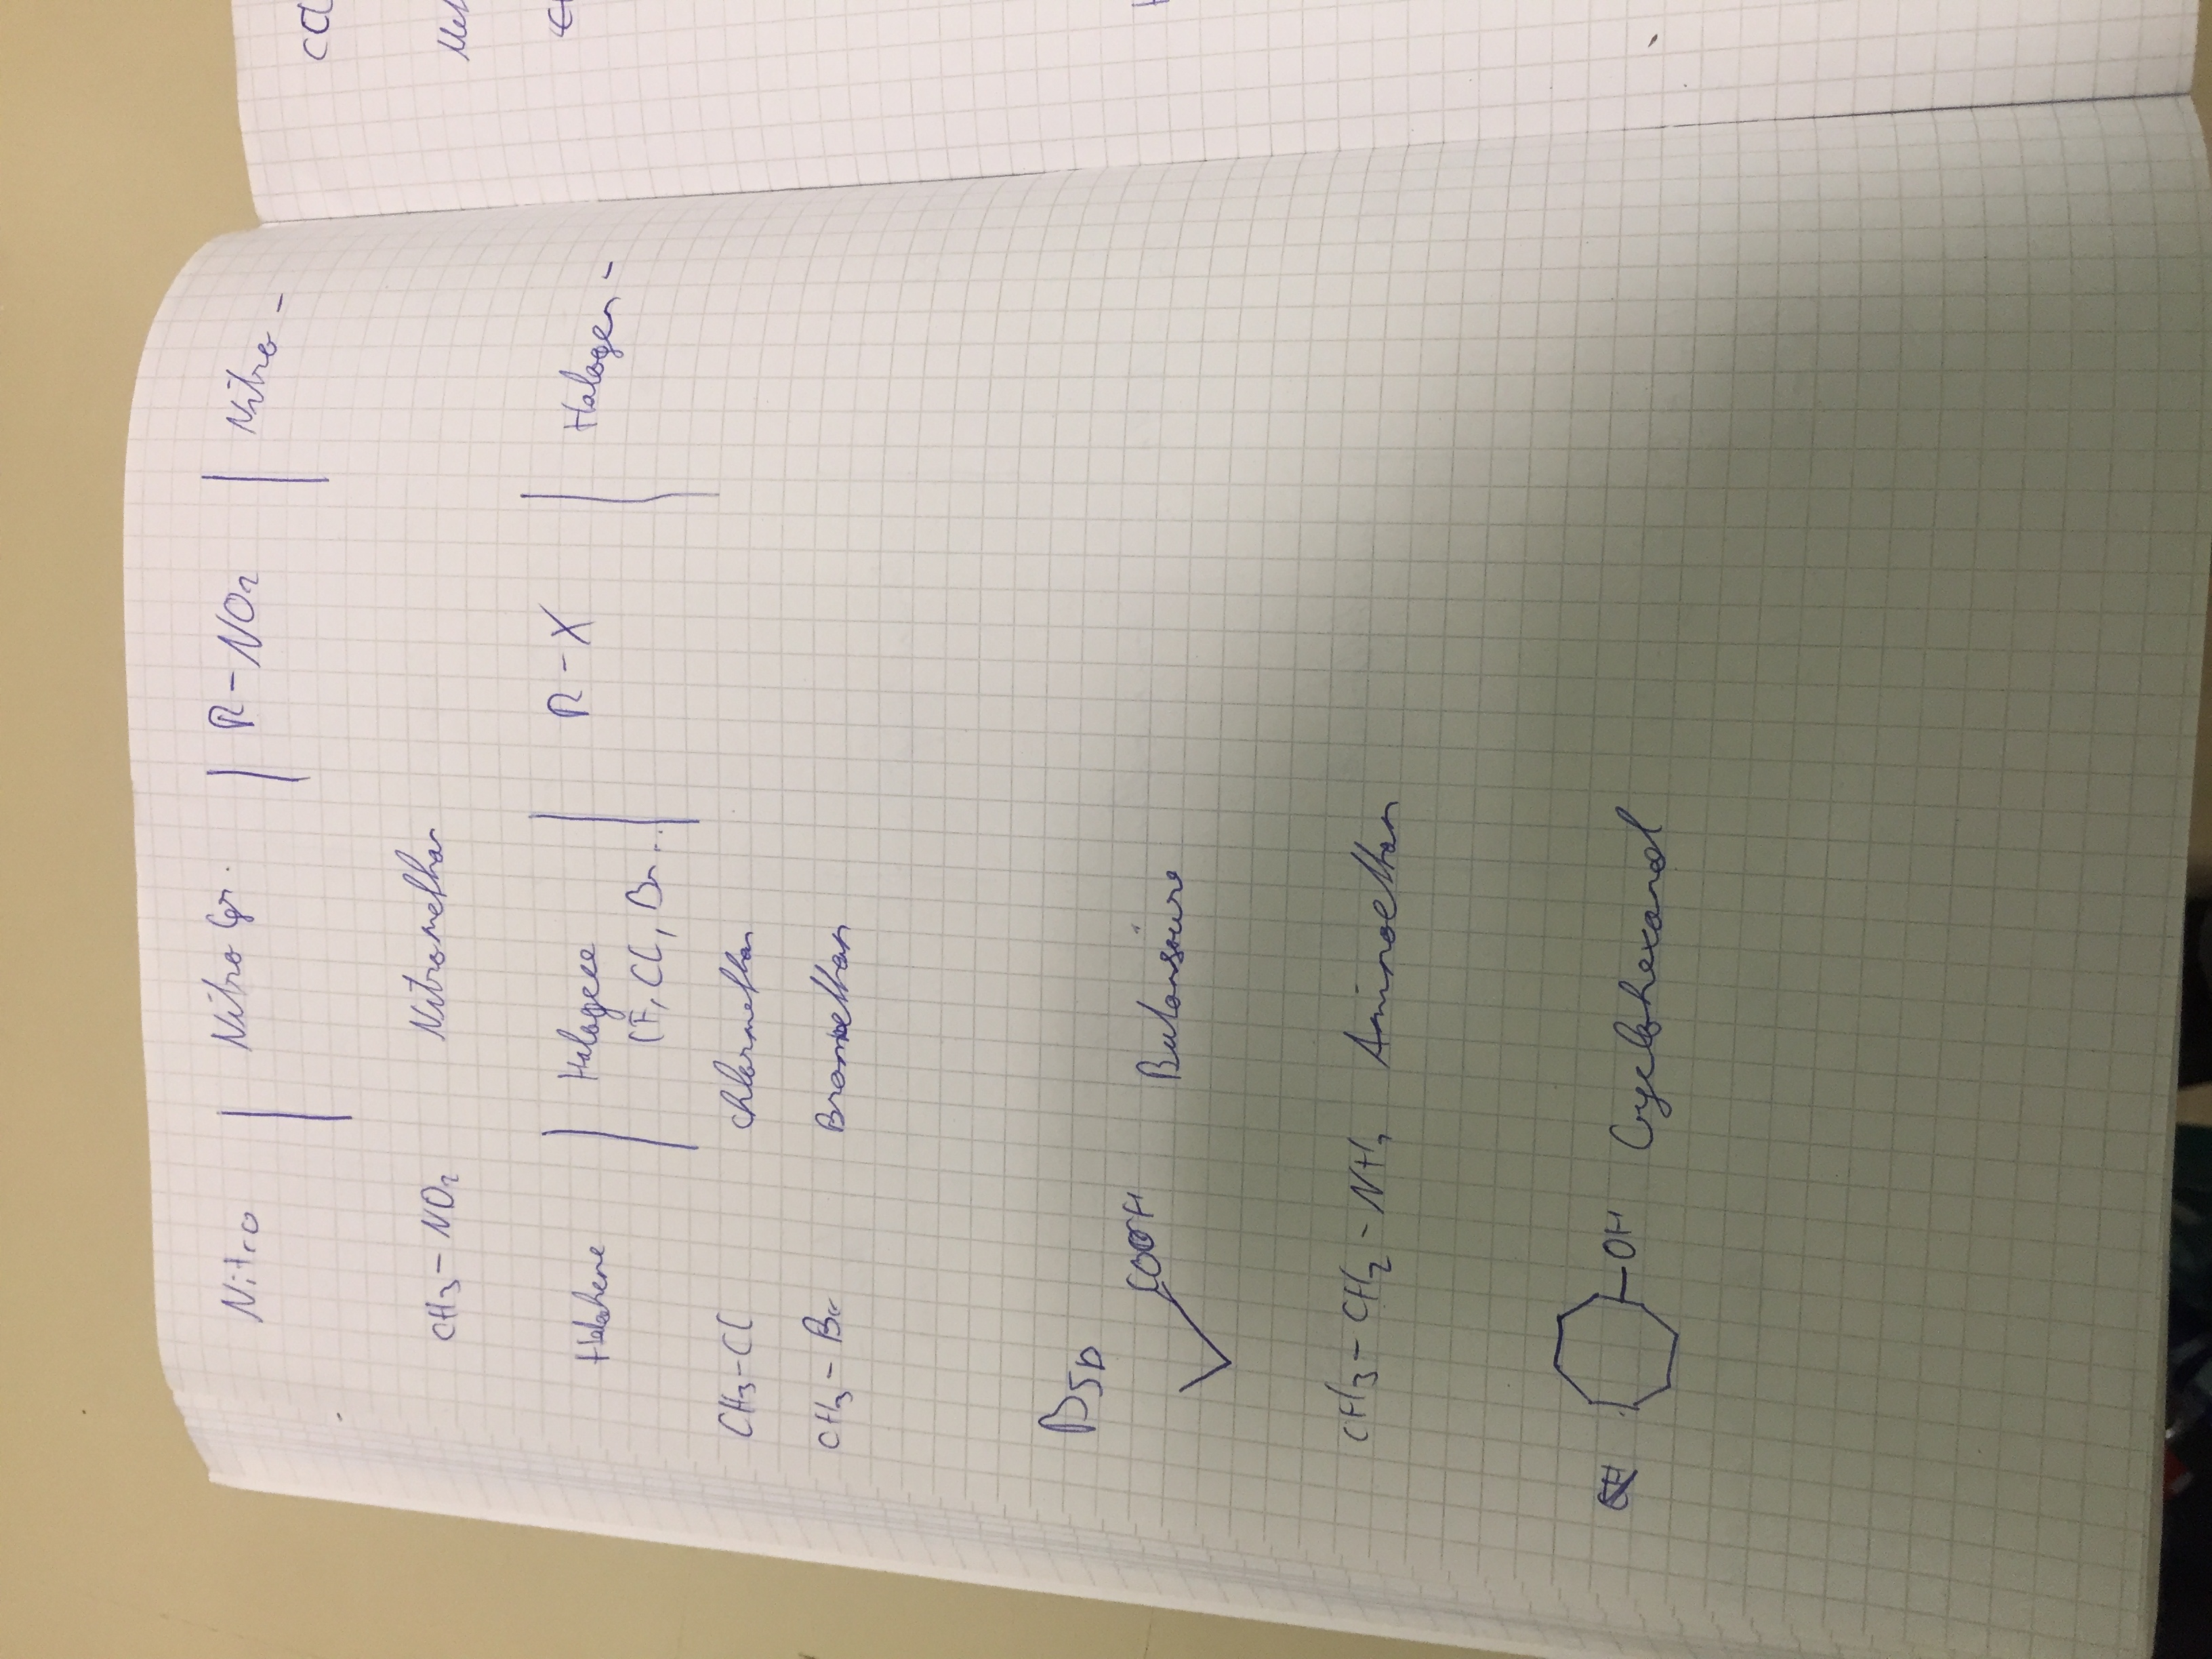 Nitro | Nitro Gr. | R-NO2 | Nitro-
CH3-NO2 Nitromethan
Halogene | R-X | Halogen-
(F, Cl, Br..
CH3-Cl Chlormethan
CH3-Br Brommethan
COOH Butansäure
CH3-CH2-NH2 Aminoethan
-OH Cyclohexanol
CCl
Met